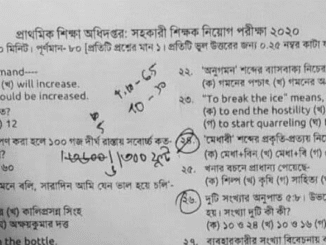 প্রাথমিক শিক্ষা অধিদপ্তর: সহকারী শিক্ষক নিয়োগ পরীক্ষা ২০২০
০ মিনিট। পূর্ণমান- ৮০ [প্রতিটি প্রশ্নের মান ১। প্রতিটি ভুল উত্তরের জন্য ০.২৫ নম্বর কাটা
mand----
(খ) will increase.
ould be increased.
) 12
গণ করা হলে ১০০ গজ দীর্ঘ রাস্তায় সর্বোচ্চ
৬০
মনে বলি, সারাদিন আমি যেন ভাল হয়ে চলি'-
(খ) কালিপ্রসন্ন সিংহ
অক্ষয়কুমার দত্ত
the bottle.
২২. 'অনুগমন' শব্দের ব্যাসবাক্য নিচের
(ক) গমনের পশ্চাৎ (খ) গমনের
২৩. "To break the ice" means,
(ক) to end the hostility (খ)
(গ) to start quarreling (ঘ)
২৪. 'মেধাবী' শব্দের প্রকৃতি-প্রত্যয়
(ক) মেধা+বিন (খ) মেধা+বী
২৫. খনার বচনে প্রাধান্য পেয়েছে-
(ক) শিল্প (খ) কৃষি (গ) সাহিত্য
২৬. দুটি সংখ্যার অনুপাত ৫:৮। উভয়ে
হয়। সংখ্যা দুটি কী কী?
(ক) ১০ ও ২৪ (খ) ১০ ও ১৬ (গ)
২৭. ব্যবহারকারীর সংখ্যা বিবেচনায়